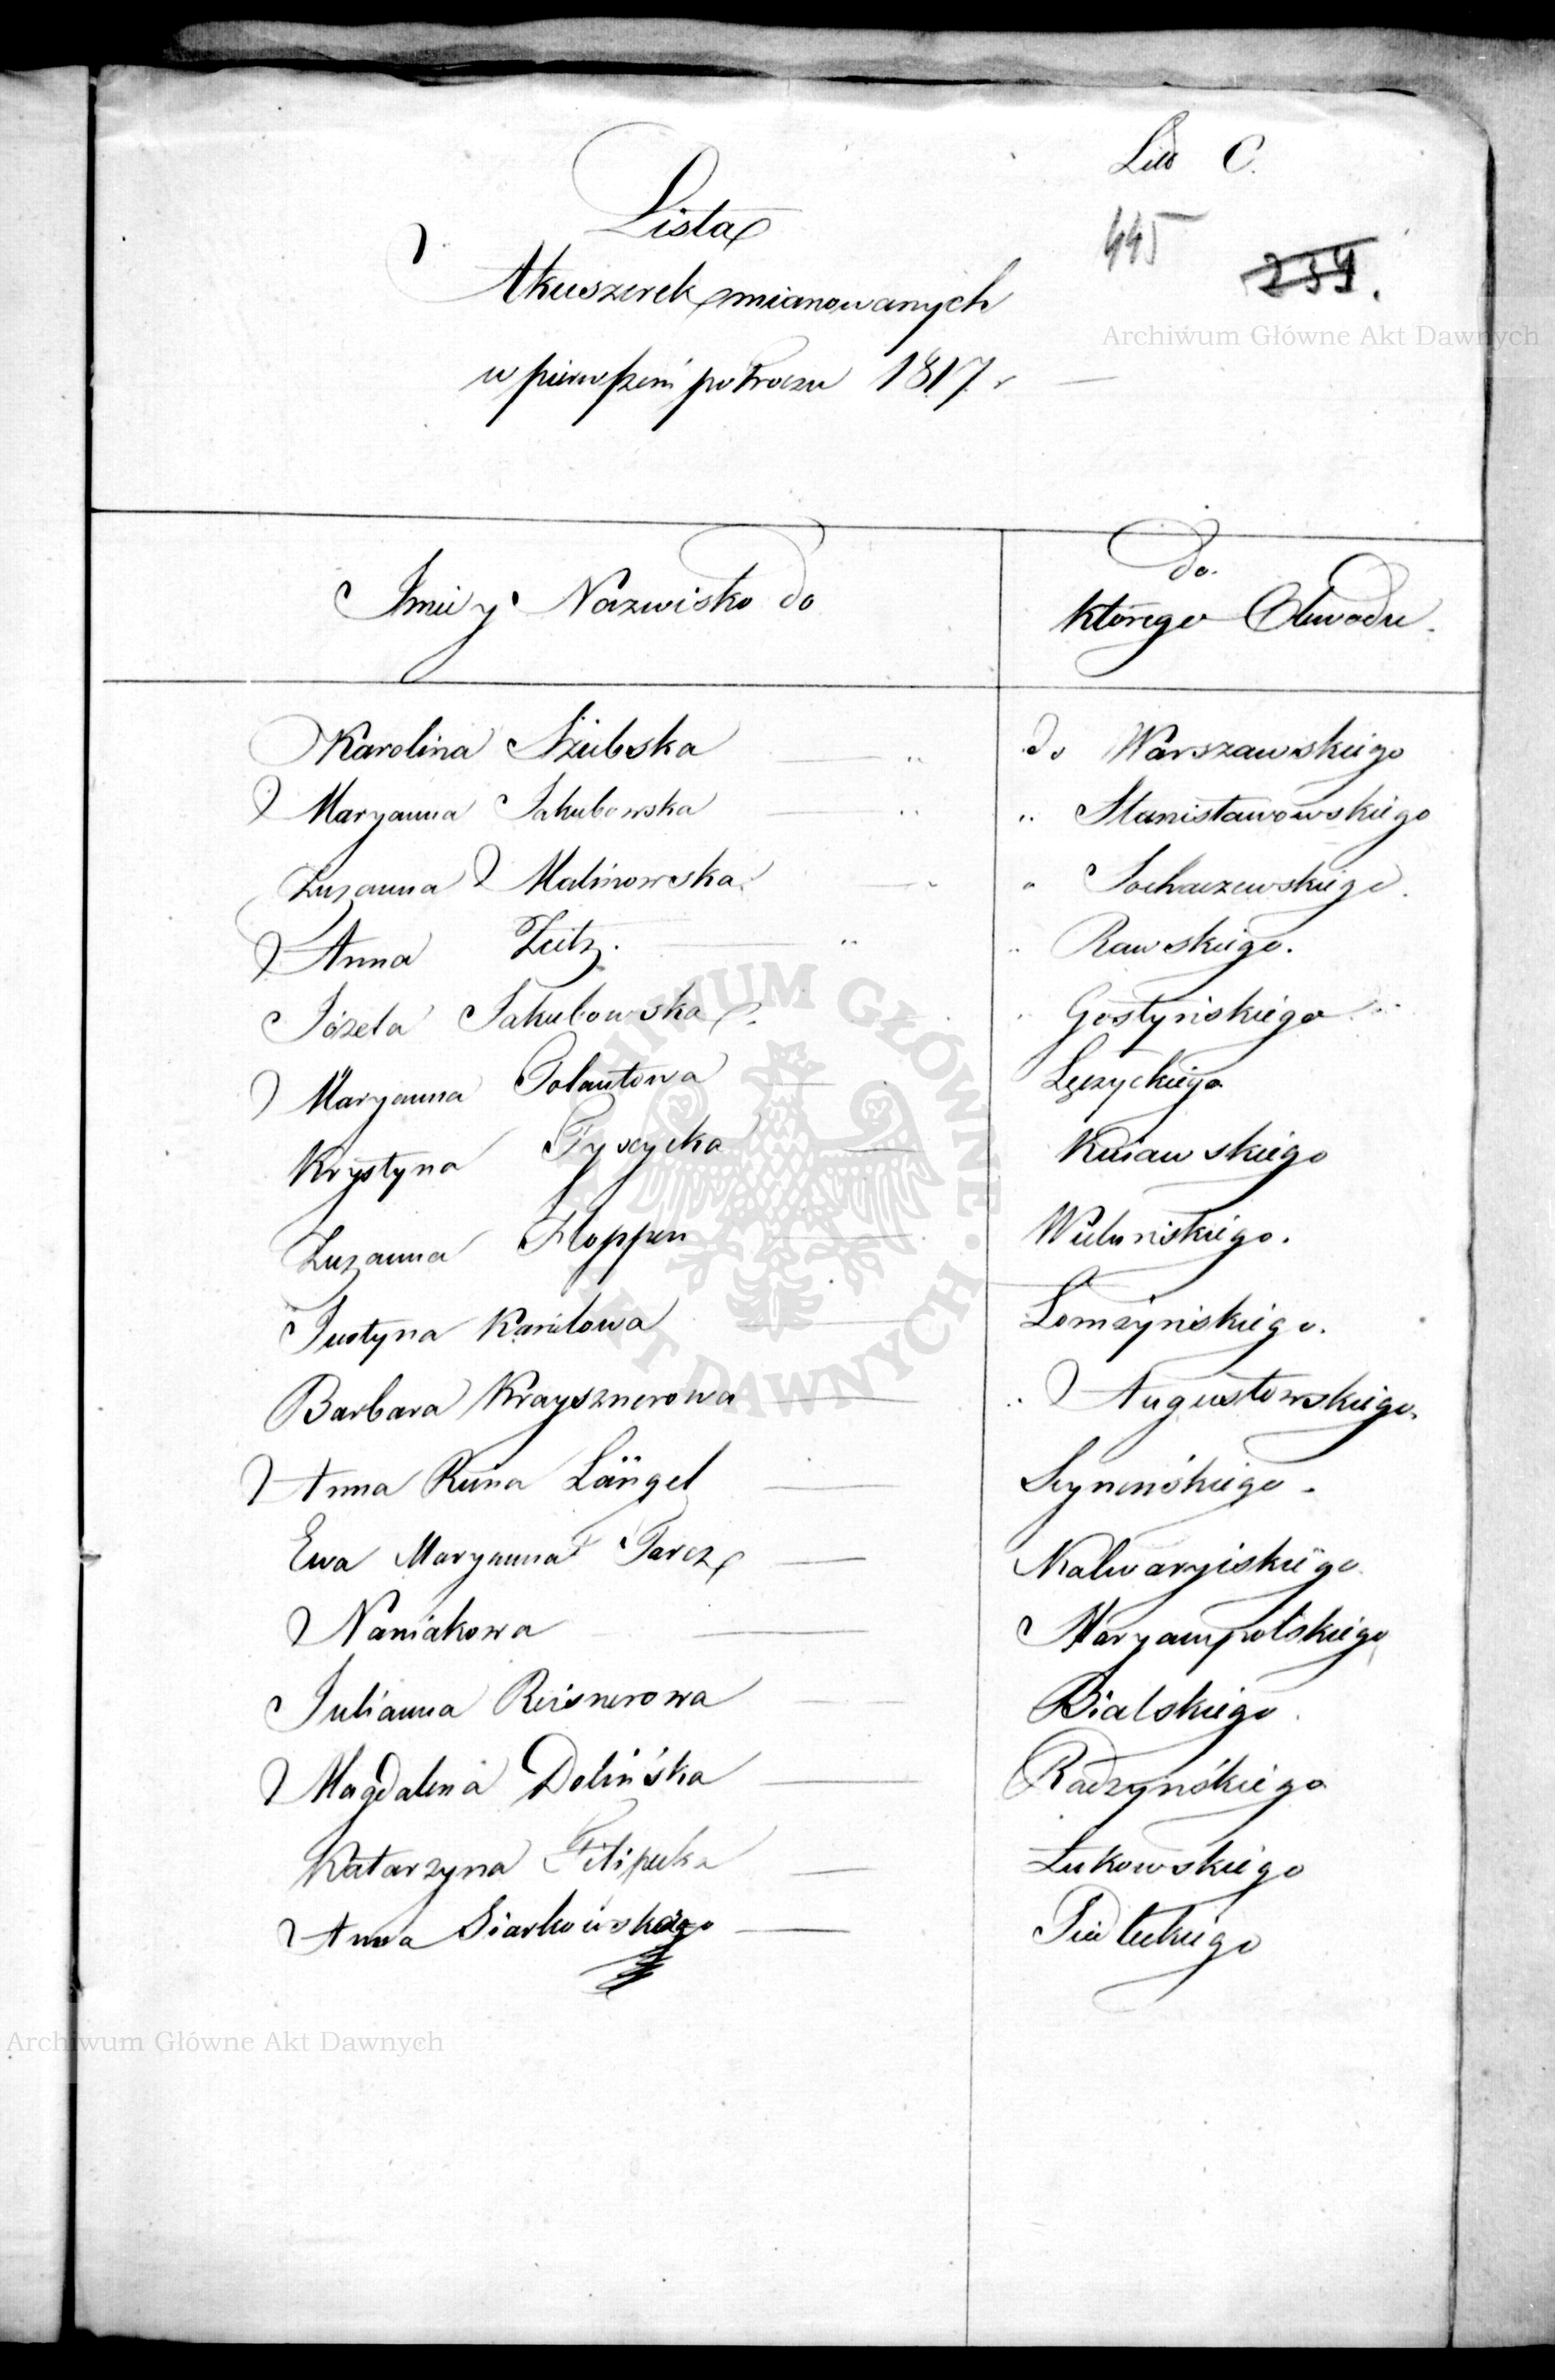 Lit C.
445
239.
Lista
Akuszerek mianowanych
w pierwszem półroczu 1817 r
Archiwum Główne Akt Dawnych
Imię y Nazwisko do
do
którego Obwodu.
Karolina Szubska do Warszawskiego
Maryanna Jakubowska " Stanisławowskiego
Zuzanna Malinowska " Sochaczewskiego.
Anna Zeitz. " Rawskiego.
Józefa Jakubowska Gostyńskiego
Maryanna Łęczyckiego
Krystyna Kuiawskiego
Zuzanna Hoppen Wieluńskiego.
Justyna Łomżyńskiego.
Barbara Kraysznerowa Augustowskiego.
Anna Längel Seyneńskiego.
Ewa Maryanna Tarcz Kalwaryiskiego
Naniakowa Maryampolskiego
Julianna Reisnerowa Bialskiego.
Magdalena Dolińska Radzyńskiego
Katarzyna Filipecka Łukowskiego
Anna Siarkowska Siedleckiego
ARCHIWUM GŁÓWNE AKT DAWNYCH
Archiwum Główne Akt Dawnych